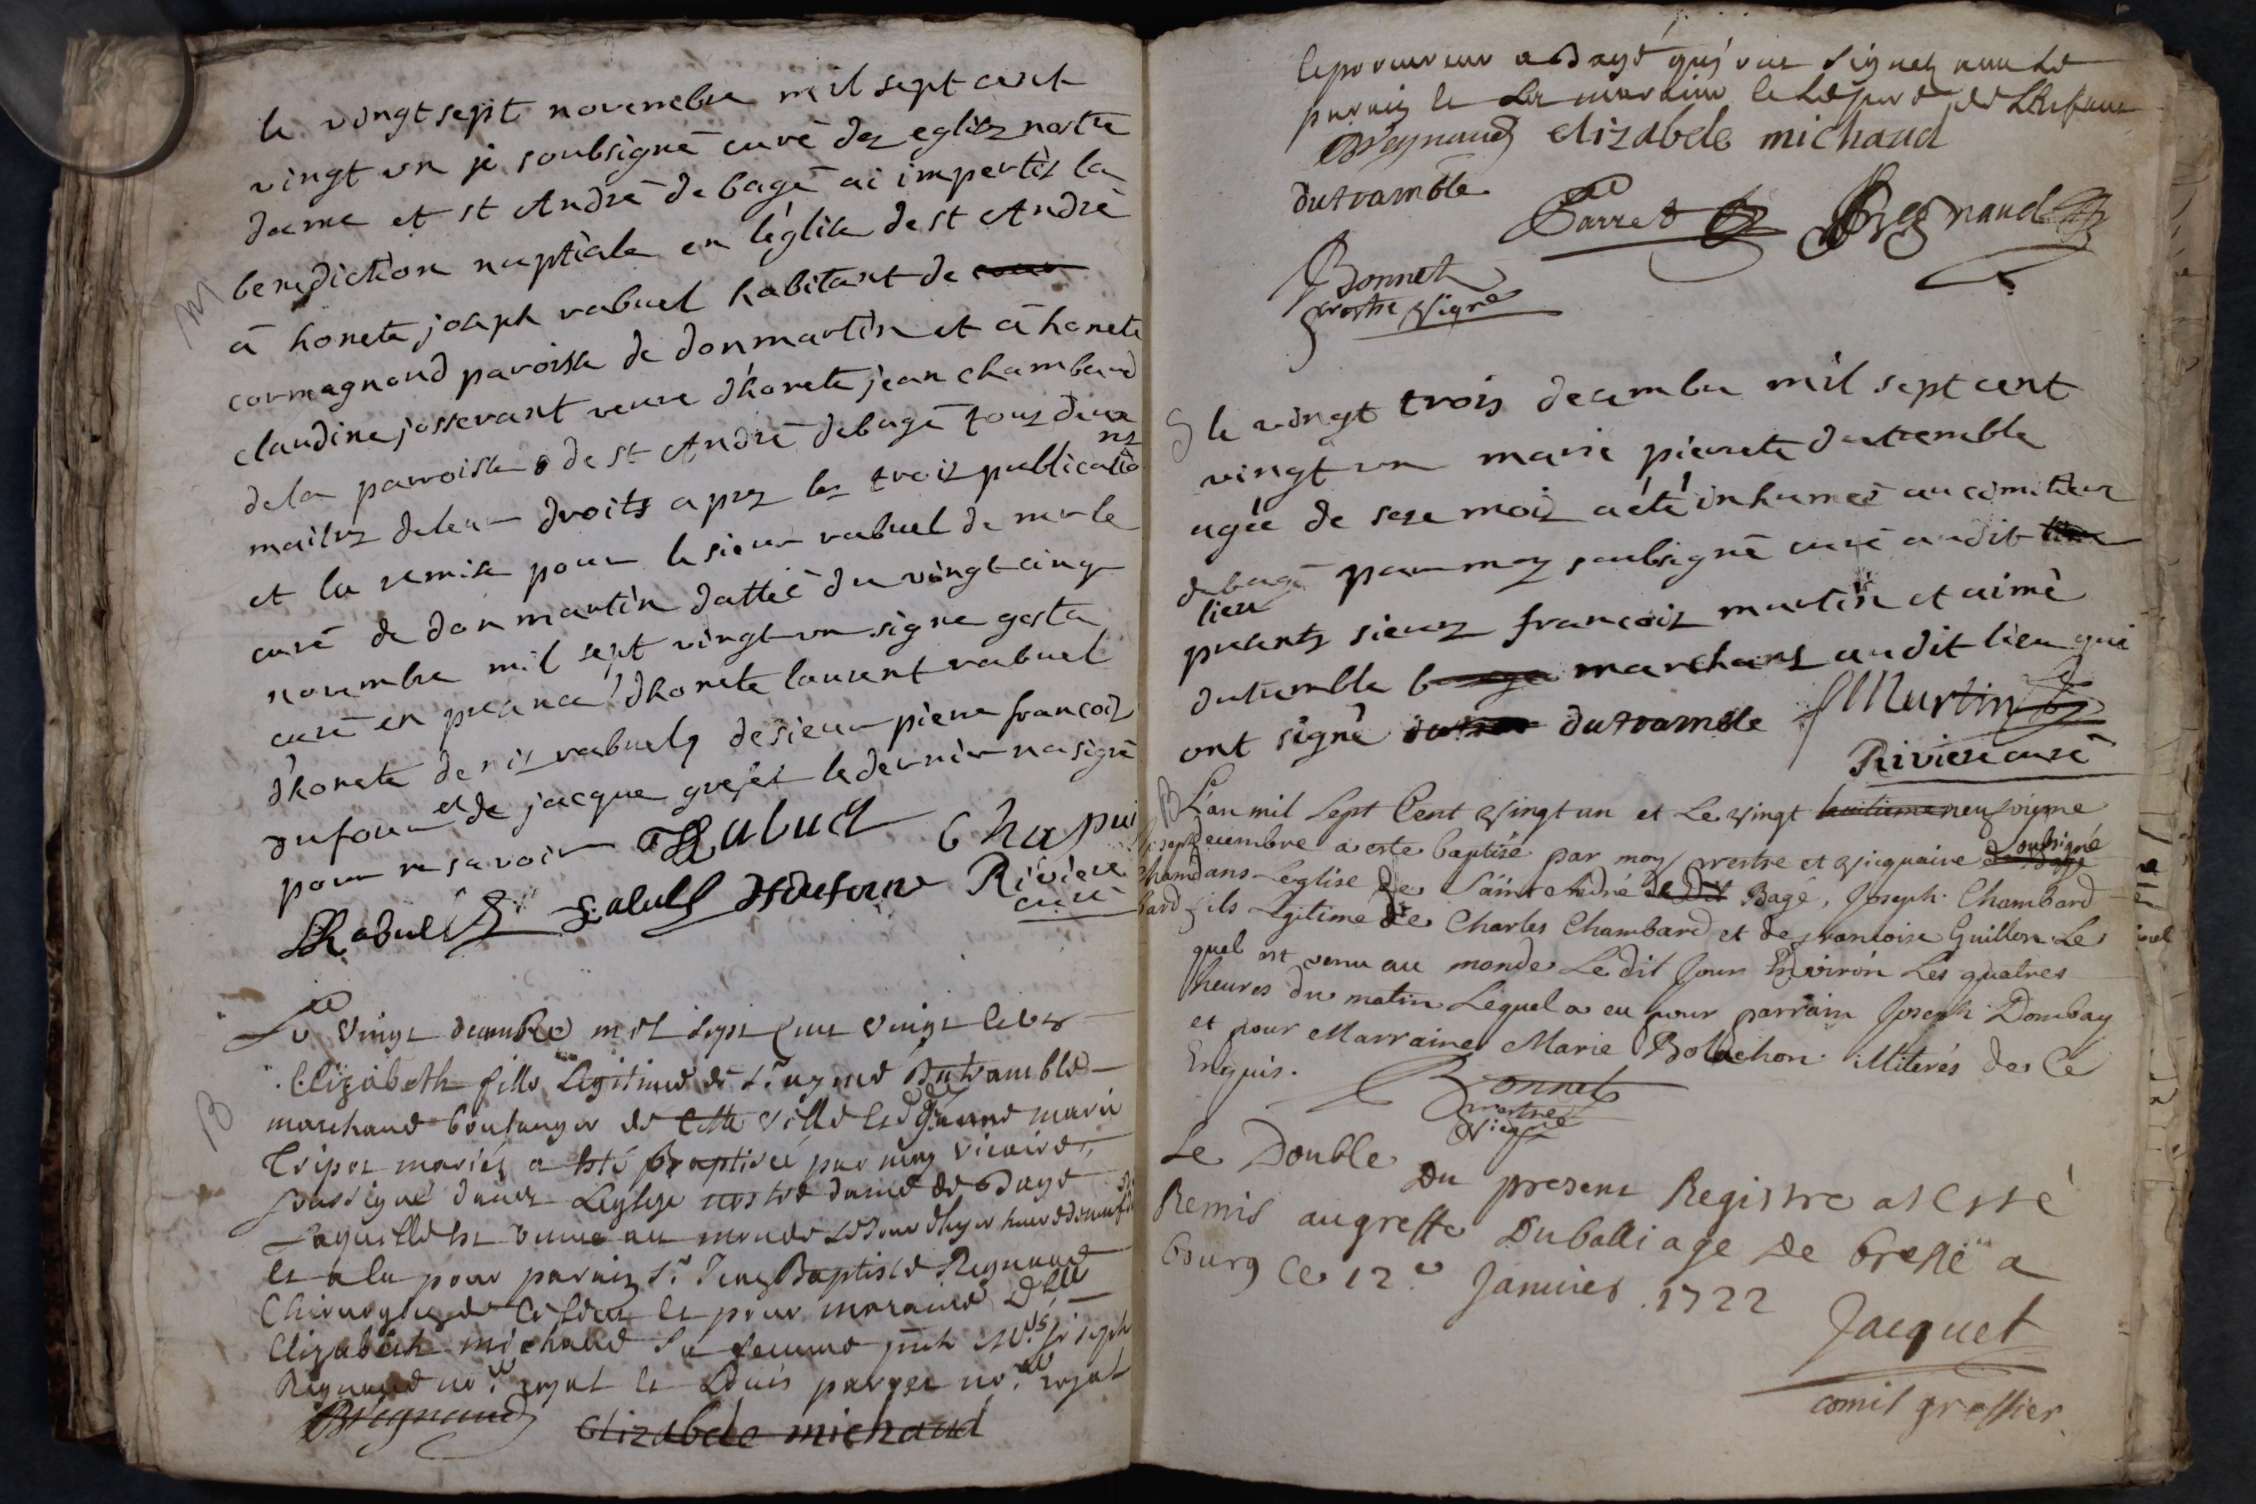 M
le vingt sept novembre mil sept cent
vingt un je soubsigné curé dez eglisez nostre
dame et st André de bagé ai impertis la
benediction nuptiale en l'églisse de st André
a honete joseph rabuel habitant de
cormagnoud paroisse de donmartin et a honete
claudine josserant veuve d'honete jean chambard
de la parroisse de st André de bagé tous deux
maitrez de leur droits aprez lez trois publications
et la remise pour le sieur rabuel de mr le
curé de don martin dattée du vingt cinq
novembre mil sept vingt un signe gosta
curé en presence d'honete laurent rabuel
d'honete denis rabuel, de sieur pierre francois
dufour et de jacque grefet le dernier na signé
pour ne savoir Rabuel Chapui
Rabuel Rabuel Dufour Riviere
curé
B
Le vingt decembre mil sept cent vingt et un
Elizabeth fille Legitime de Sr aymé Dutramble
marchand boulanger de cette ville et de jeanne marie
Tripoz mariés a esté Baptisée par moy vicaire
soussigné dans Leglise nostre dame de Bagé
Laquelle est venue au monde
et a eu pour parain Sr Jean Baptiste Regnaud
Chirurgien de ce lieu et pour maraine Dlle
Elizabeth michaud sa femme pnts Mrs Joseph
Regnaud nore royal et Louis parret nore royal
BRegnaud Elizabele michaud
le procureur a Bagé qui ont signez avec le
parain et La maraine et Le pere de L'Enfant
BRegnaud elizabele michaud
dutramble Parret Regnaud
Bonnet
prestre Vicre
S
le vingt trois decembre mil sept cent
vingt un marie pierrete dutremble
agée de seze mois a été inhumeé au cimetiere
de bagé par moy soubsigné curé audit
lieu
presents sieurs francois martin et aimé
dutremble marchans audit lieu qui
ont signé dutramble Martin
Riviere curé
B
joseph
Chambard
L'an mil Sept Cent Vingt un et Le Vingt huitieme neuvoieme
decembre a este baptisé par moy prestre et Vicquaire soubsigné
dans Leglise de Saint André Bagé, Joseph Chambard
fils Legitime de Charles Chambard et de francoise Guillon Le
quel est venu au monde Le dit Jour Environ Les quatres
heures du matin Lequel a eu pour parrain Joseph Dombay
et pour Marraine Marie Bolachon illiterés de Ce
Enquis.
Bonnet
prestre
Vicqre
Le Double Du present Registre at Esté
Remis au greffe Du balliage De bresse a
bourg Ce 12e Janvier 1722
Jacquet
comis greffier